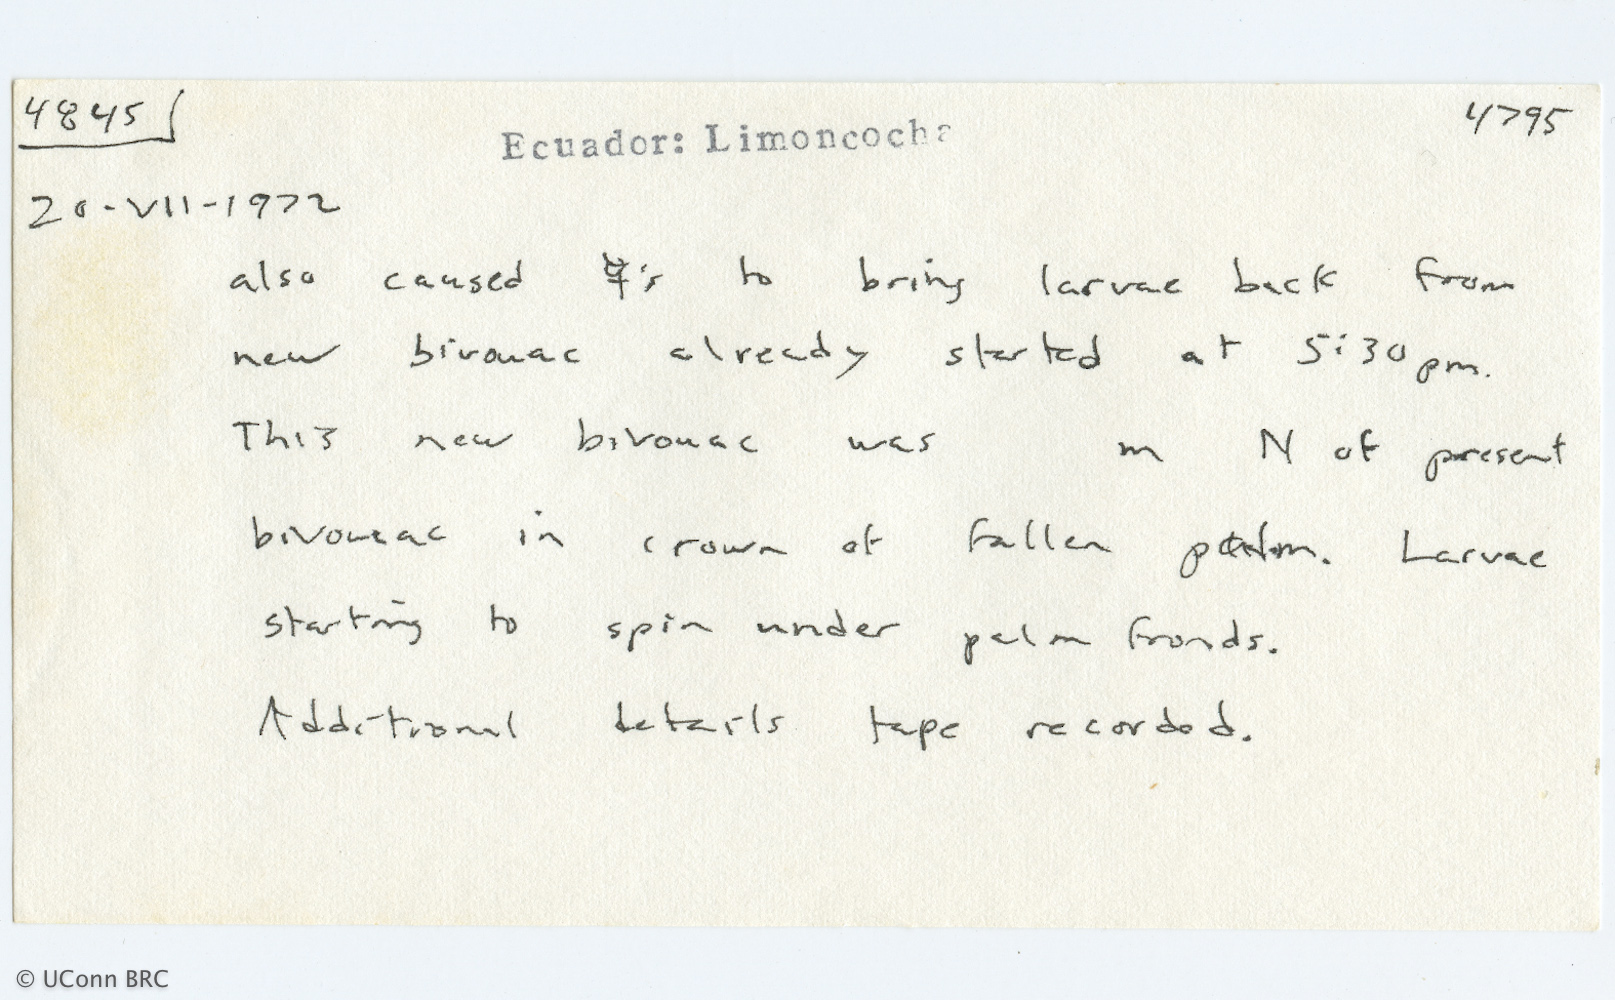 4845
4795
Ecuador: Limoncocha
20-VII-1972
also caused ☿'s to bring larvae back from
new bivouac already started at 5:30 pm.
This new bivouac was m N of present
bivouac in crown of fallen palm. Larvae
starting to spin under palm fronds.
Additional details tape recorded.
© UConn BRC